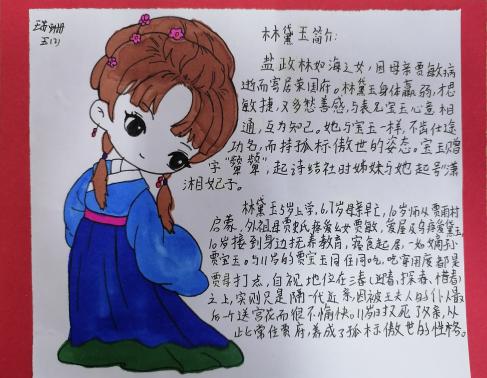 五(2)
林黛玉简介:
盐政林如海之女,因母亲贾敏病
逝而寄居荣国府。林黛玉身体羸弱,才思
敏捷,又多愁善感,与表兄宝玉心意相
通,互为知己。她与宝玉一样,不尚仕途
功名,而持孤标傲世的姿态。宝玉赠
字"颦颦",起诗结社时姊妹与她起号"潇
湘妃子。
林黛玉5岁上学,6、7岁母亲早亡,10岁师从贾雨村
启蒙,外祖母贾史氏疼爱幼女贾敏,爱屋及乌疼爱黛玉,
10岁接到身边抚养教育,寝食起居,一如嫡孙
贾宝玉。与11岁的贾宝玉同住同吃,吃穿用度都是
贾母打点,自视地位在三春(迎春、探春、惜春)
之上,实则只是隔一代近亲,因被王夫人的仆人最
后一个送宫花而很不愉快。11岁时又死了父亲,从
此长住贾府,养成了孤标傲世的性格。